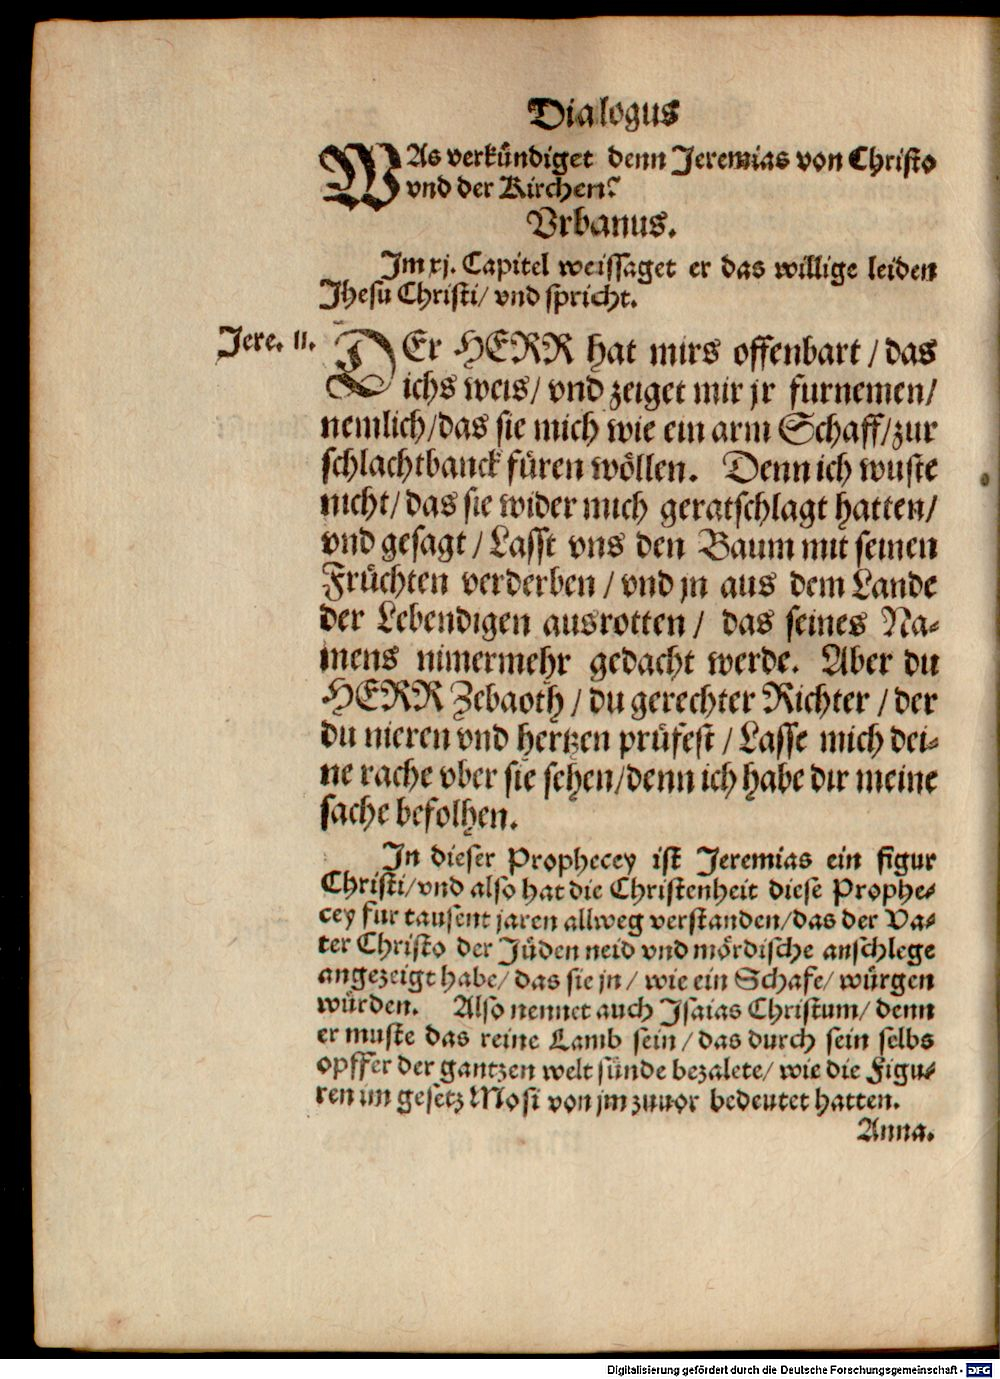 Dialogus
WAs verkündiget denn Jeremias von Christo
vnd der Kirchen?
Vrbanus.
Im xj. Capitel weissaget er das willige leiden
Jhesu Christi/ vnd spricht.
Jere. 11.
DEr HERR hat mirs offenbart / das
ichs weis/ vnd zeiget mir jr furnemen/
nemlich/das sie mich wie ein arm Schaff/zur
schlachtbanck füren wöllen. Denn ich wuste
nicht/ das sie wider mich geratschlagt hatten/
vnd gesagt / Lasst vns den Baum mit seinen
Früchten verderben / vnd jn aus dem Lande
der Lebendigen ausrotten / das seines Na-
mens nimermehr gedacht werde. Aber du
HERR Zebaoth / du gerechter Richter / der
du nieren vnd hertzen prüfest / Lasse mich dei-
ne rache vber sie sehen/denn ich habe dir meine
sache befolhen.
In dieser Prophecey ist Jeremias ein figur
Christi/vnd also hat die Christenheit diese Prophe-
cey fur tausent jaren allweg verstanden/das der Va-
ter Christo der Jüden neid vnd mördische anschlege
angezeigt habe/ das sie jn / wie ein Schafe/ würgen
würden. Also nennet auch Isaias Christum/ denn
er muste das reine Lamb sein / das durch sein selbs
opffer der gantzen welt sünde bezalete/ wie die Figu-
ren im gesetz Mosi von jm zuuor bedeutet hatten.
Anna.
Digitalisierung gefördert durch die Deutsche Forschungsgemeinschaft - DFG